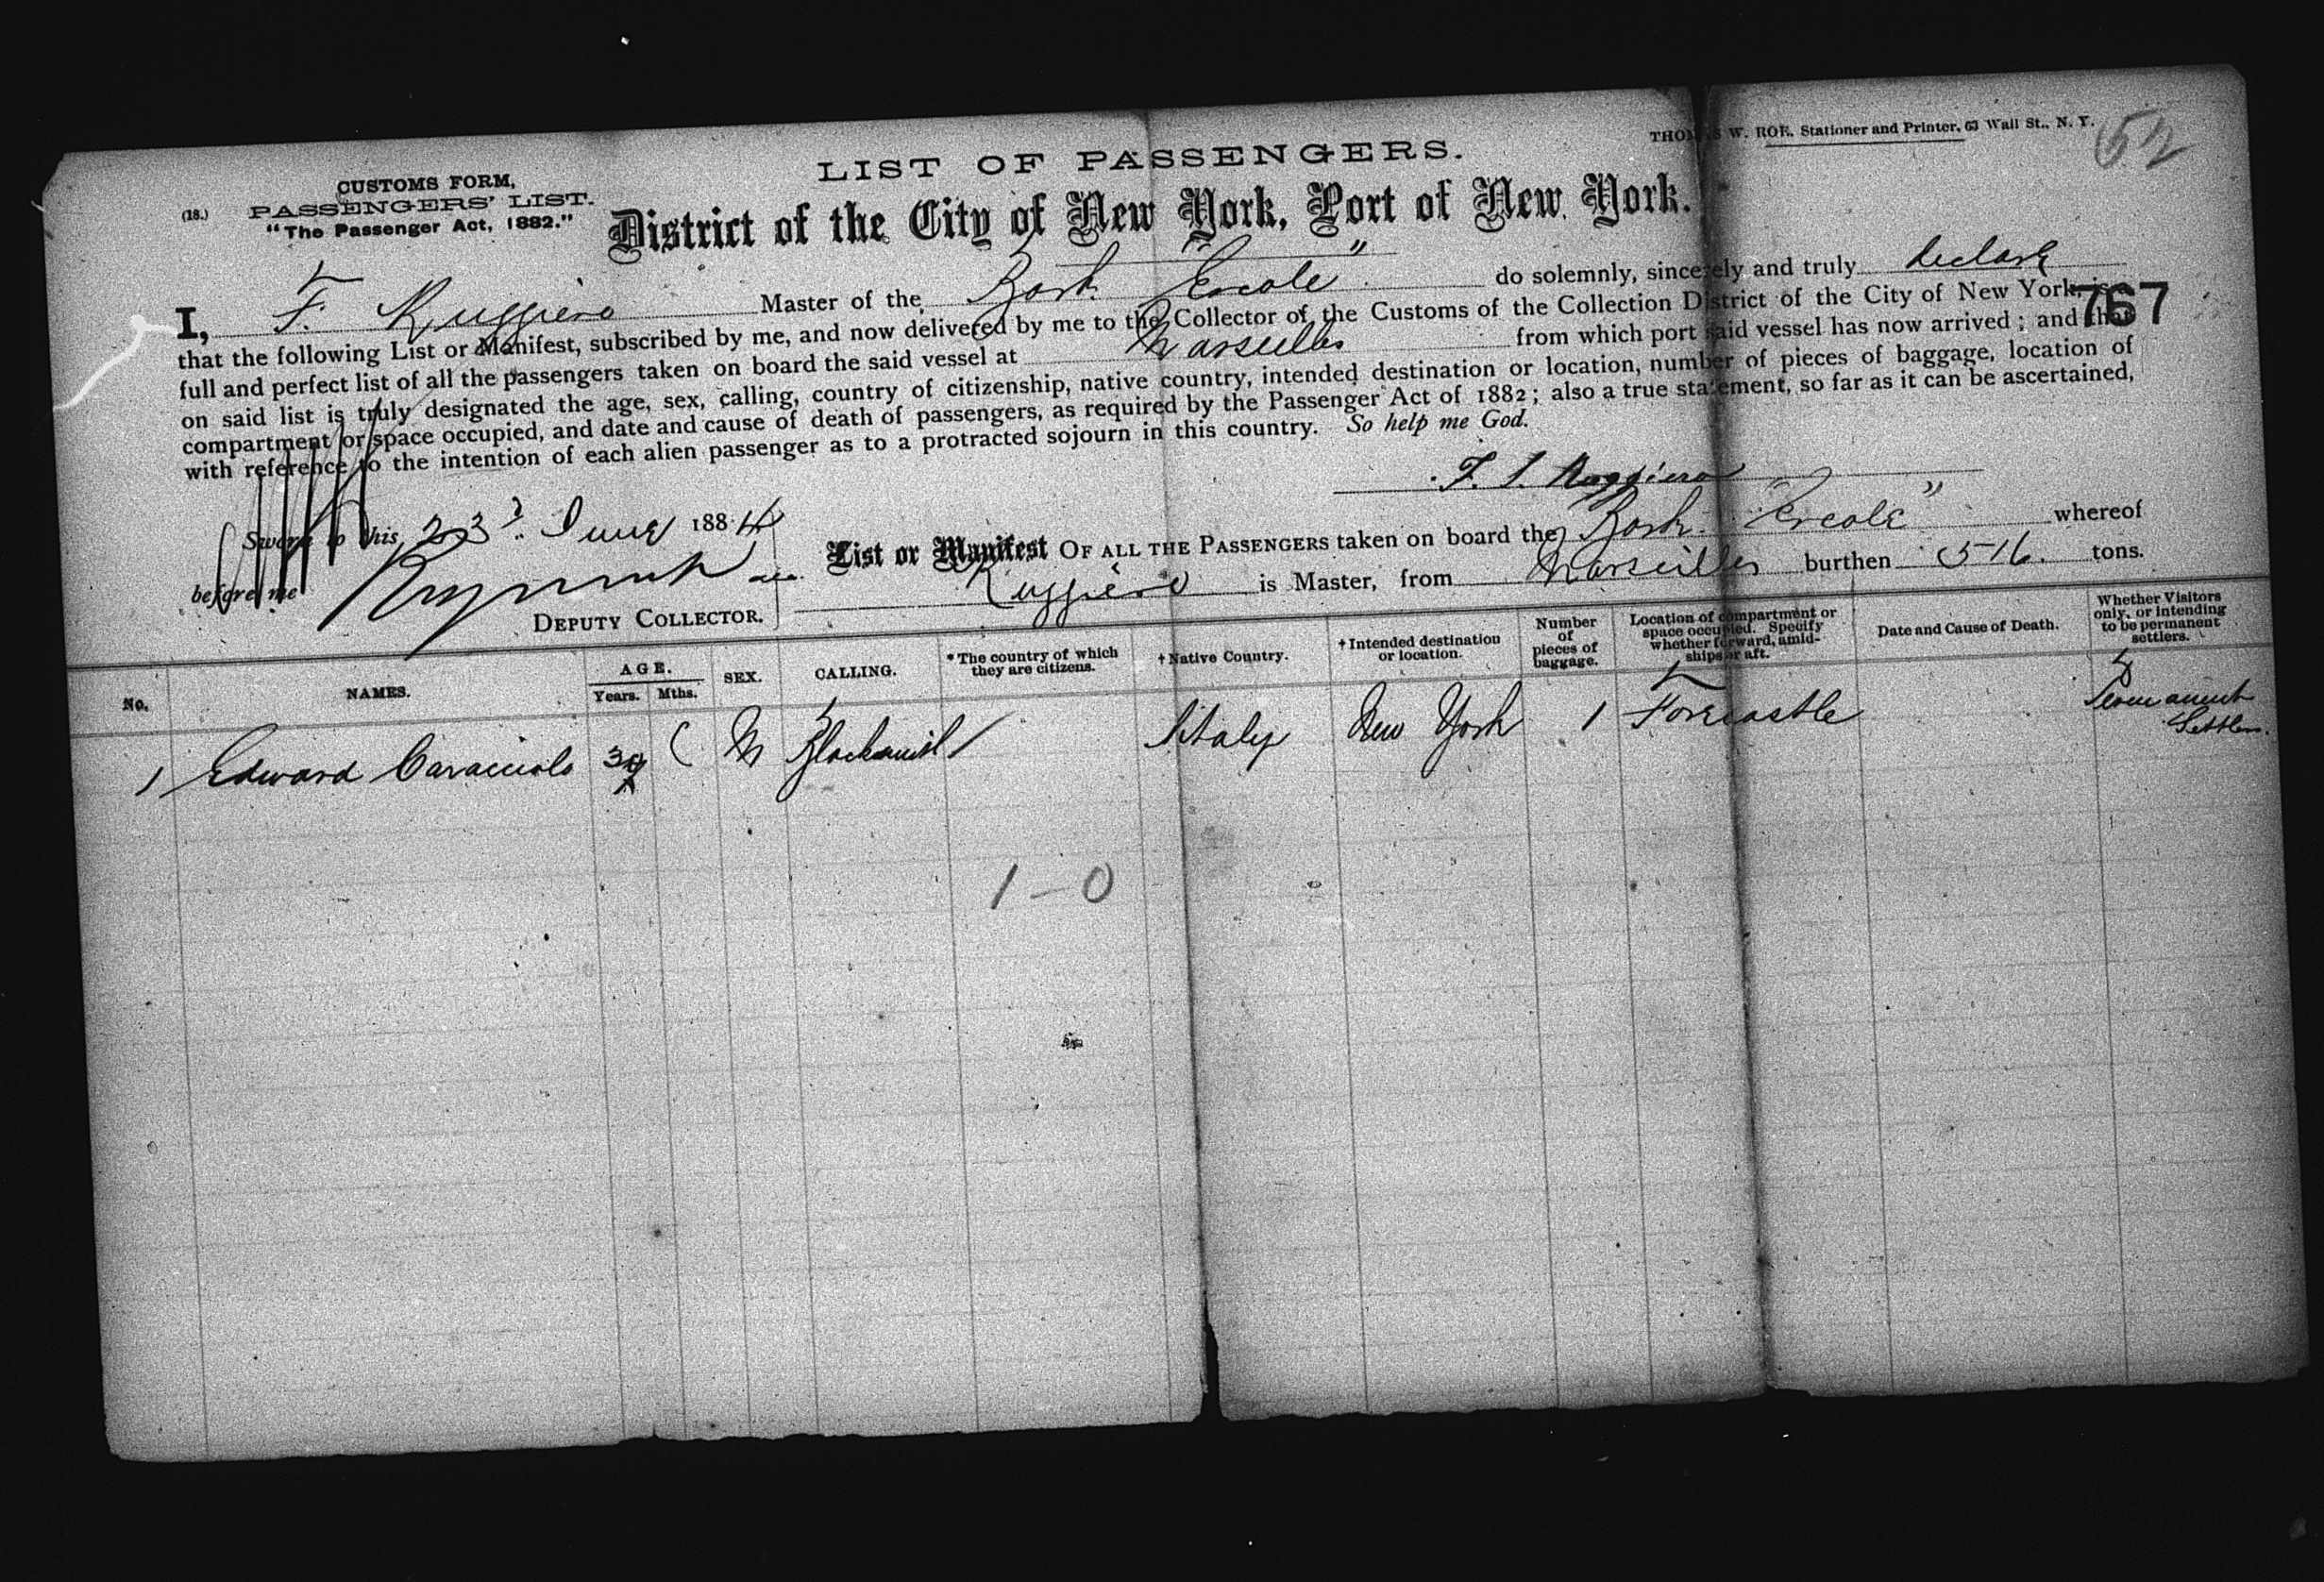 THOMAS W. ROE, Stationer and Printer, 63 Wall St., N. Y.
52
LIST OF PASSENGERS.
CUSTOMS FORM,
(18.) PASSENGERS' LIST.
"The Passenger Act, 1882."
District of the City of New York, Port of New York.
I, F. Ruggiero Master of the Bark "Ercole" do solemnly, sincerely and truly declare
that the following List or Manifest, subscribed by me, and now delivered by me to the Collector of the Customs of the Collection District of the City of New York, is a
767
full and perfect list of all the passengers taken on board the said vessel at Marseilles from which port said vessel has now arrived; and that
on said list is truly designated the age, sex, calling, country of citizenship, native country, intended destination or location, number of pieces of baggage, location of
compartment or space occupied, and date and cause of death of passengers, as required by the Passenger Act of 1882; also a true statement, so far as it can be ascertained,
with reference to the intention of each alien passenger as to a protracted sojourn in this country. So help me God.
F. S. Ruggiero
Sworn to this, 23d June 1884
before me
DEPUTY COLLECTOR.
List or Manifest OF ALL THE PASSENGERS taken on board the Bark "Ercole" whereof
Ruggiero is Master, from Marseilles burthen 516. tons.
No. NAMES. AGE. Years. Mths. SEX. CALLING. *The country of which they are citizens. †Native Country. †Intended destination or location. Number of pieces of baggage. Location of compartment or space occupied. Specify whether forward, amidships or aft. Date and Cause of Death. Whether Visitors only, or intending to be permanent settlers.
1 Edward Caracciolo M Blacksmith Italy New York 1 Forecastle Permanent Settler.
1-0